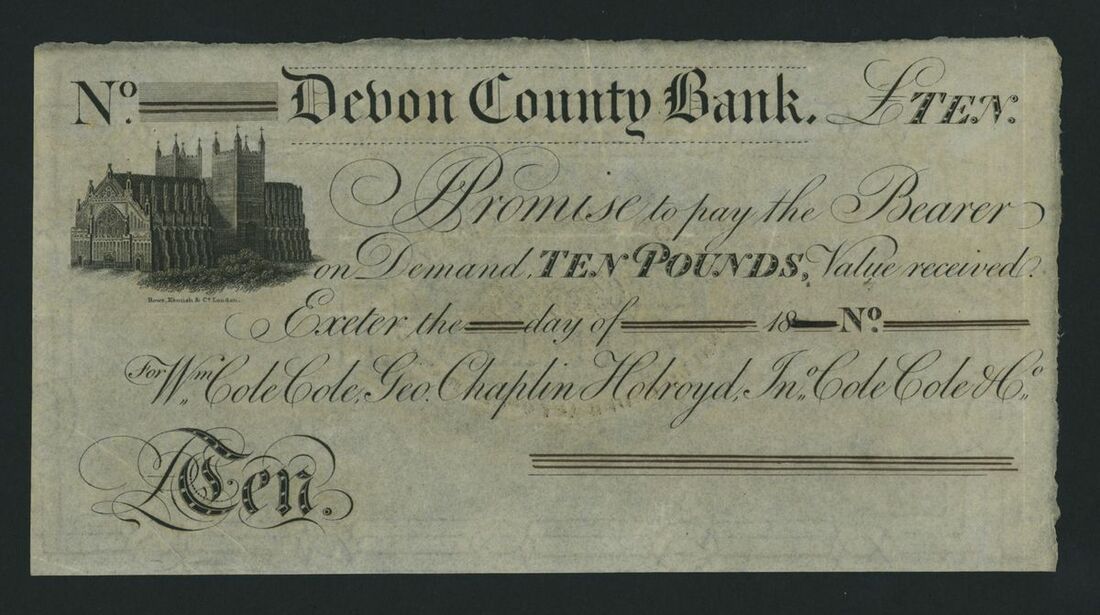 No. Devon County Bank. £TEN.
I Promise to pay the Bearer
on Demand, TEN POUNDS, Value received.
Rowe, Kentish & Co. London.
Exeter the day of 18 No.
For Wm. Cole Cole, Geo. Chaplin Holroyd, Jno. Cole Cole & Co.
£Ten.